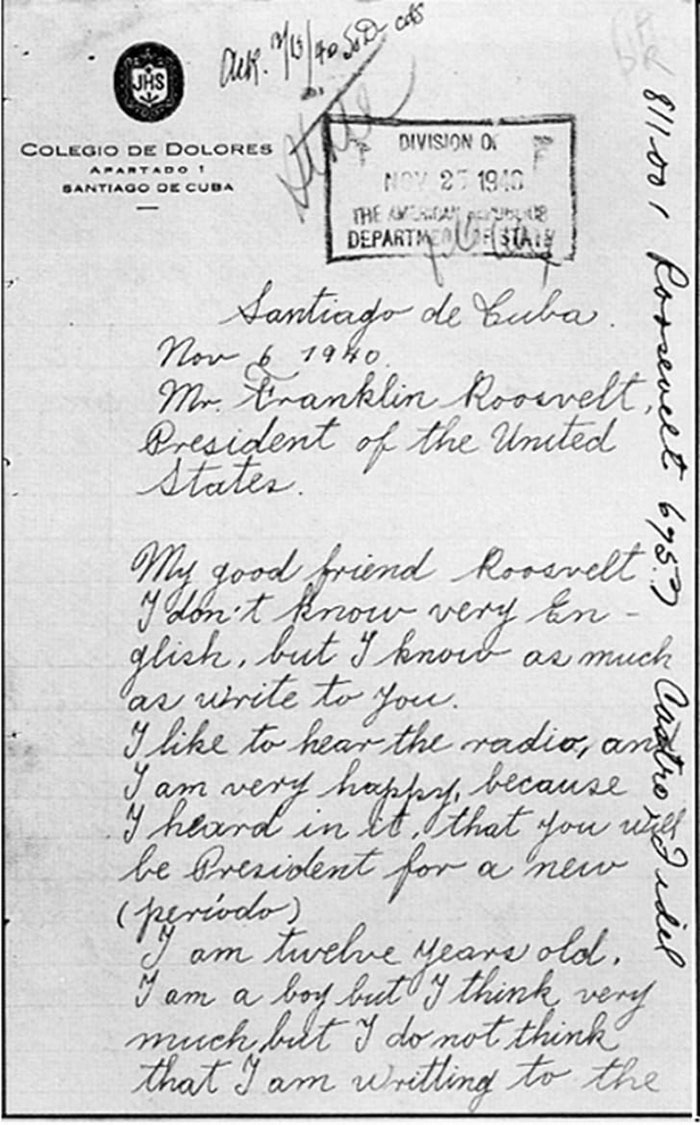 JHS
COLEGIO DE DOLORES
APARTADO 1
SANTIAGO DE CUBA
Ack. 12/13/40
DIVISION OF
NOV 27 1940
THE AMERICAN REPUBLICS
DEPARTMENT OF STATE
Santiago de Cuba.
Nov 6 1940.
Mr. Franklin Roosvelt,
President of the United
States.
My good friend Roosvelt
I don't know very En-
glish, but I know as much
as write to you.
I like to hear the radio, and
I am very happy, because
I heard in it, that you will
be President for a new
(período)
I am twelve years old.
I am a boy but I think very
much but I do not think
that I am writting to the
811.001 Roosevelt 
Castro, Fidel